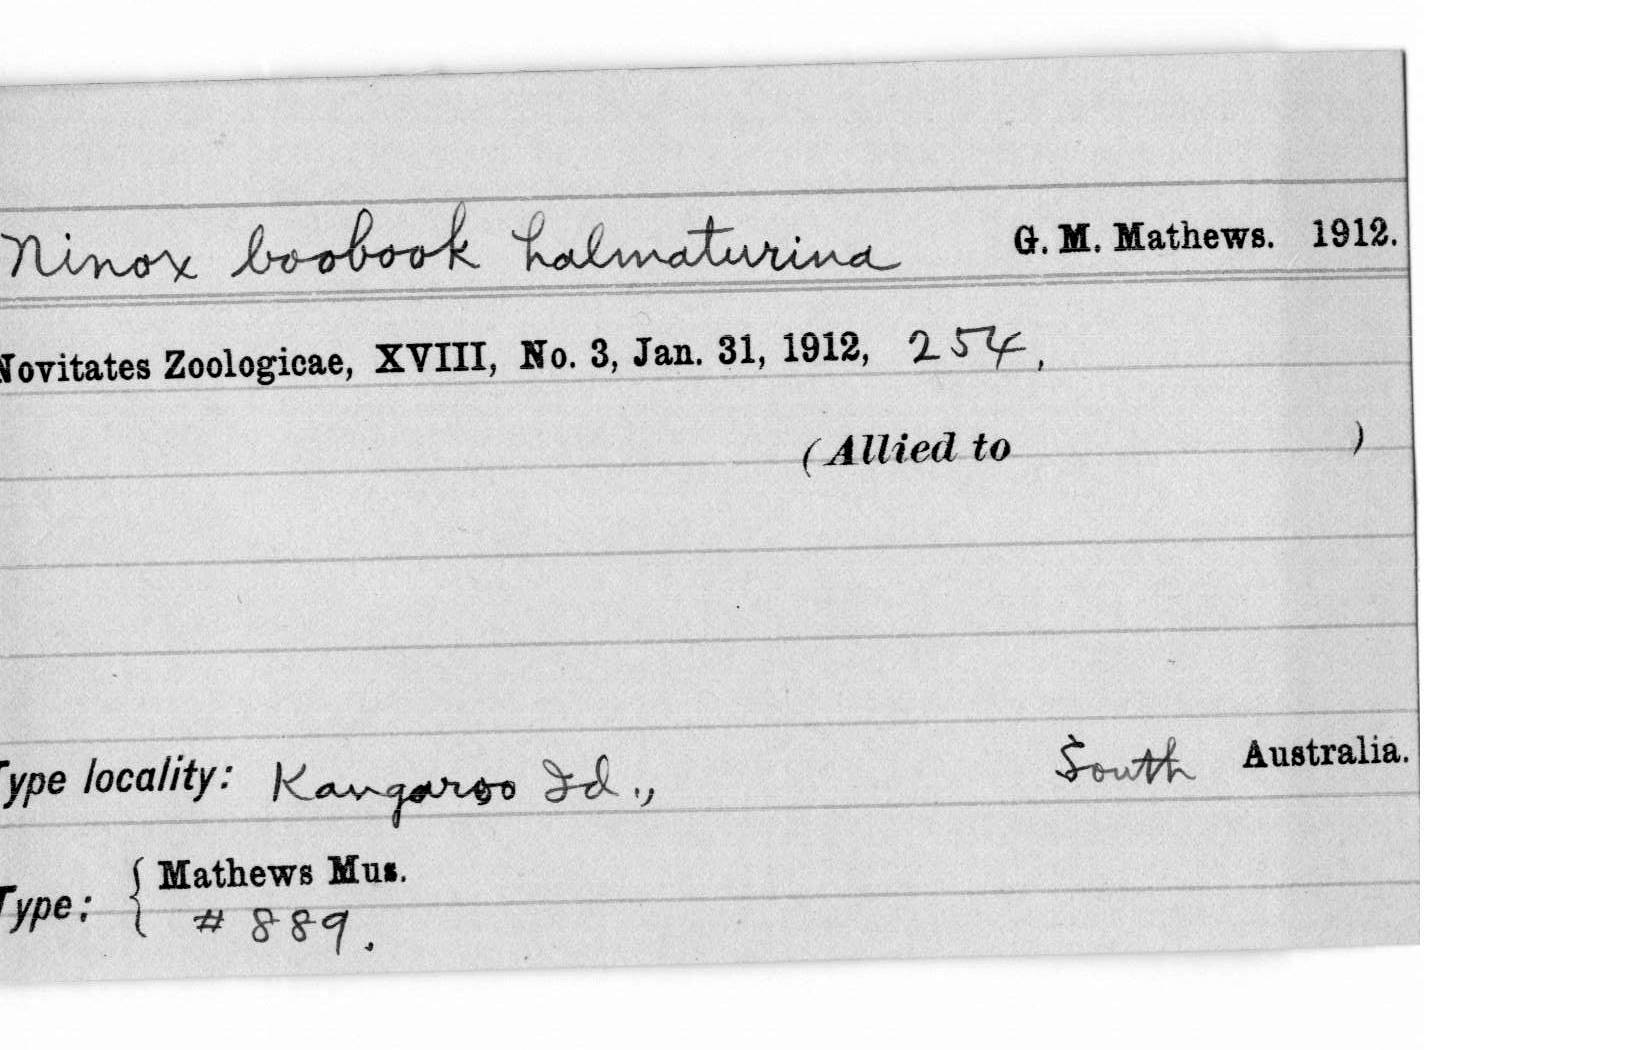 Ninox boobook halmaturina G. M. Mathews. 1912.
Novitates Zoologicae, XVIII, No. 3, Jan. 31, 1912, 254,
(Allied to )
Type locality: Kangaroo Id., South Australia.
Type: { Mathews Mus.
# 889.